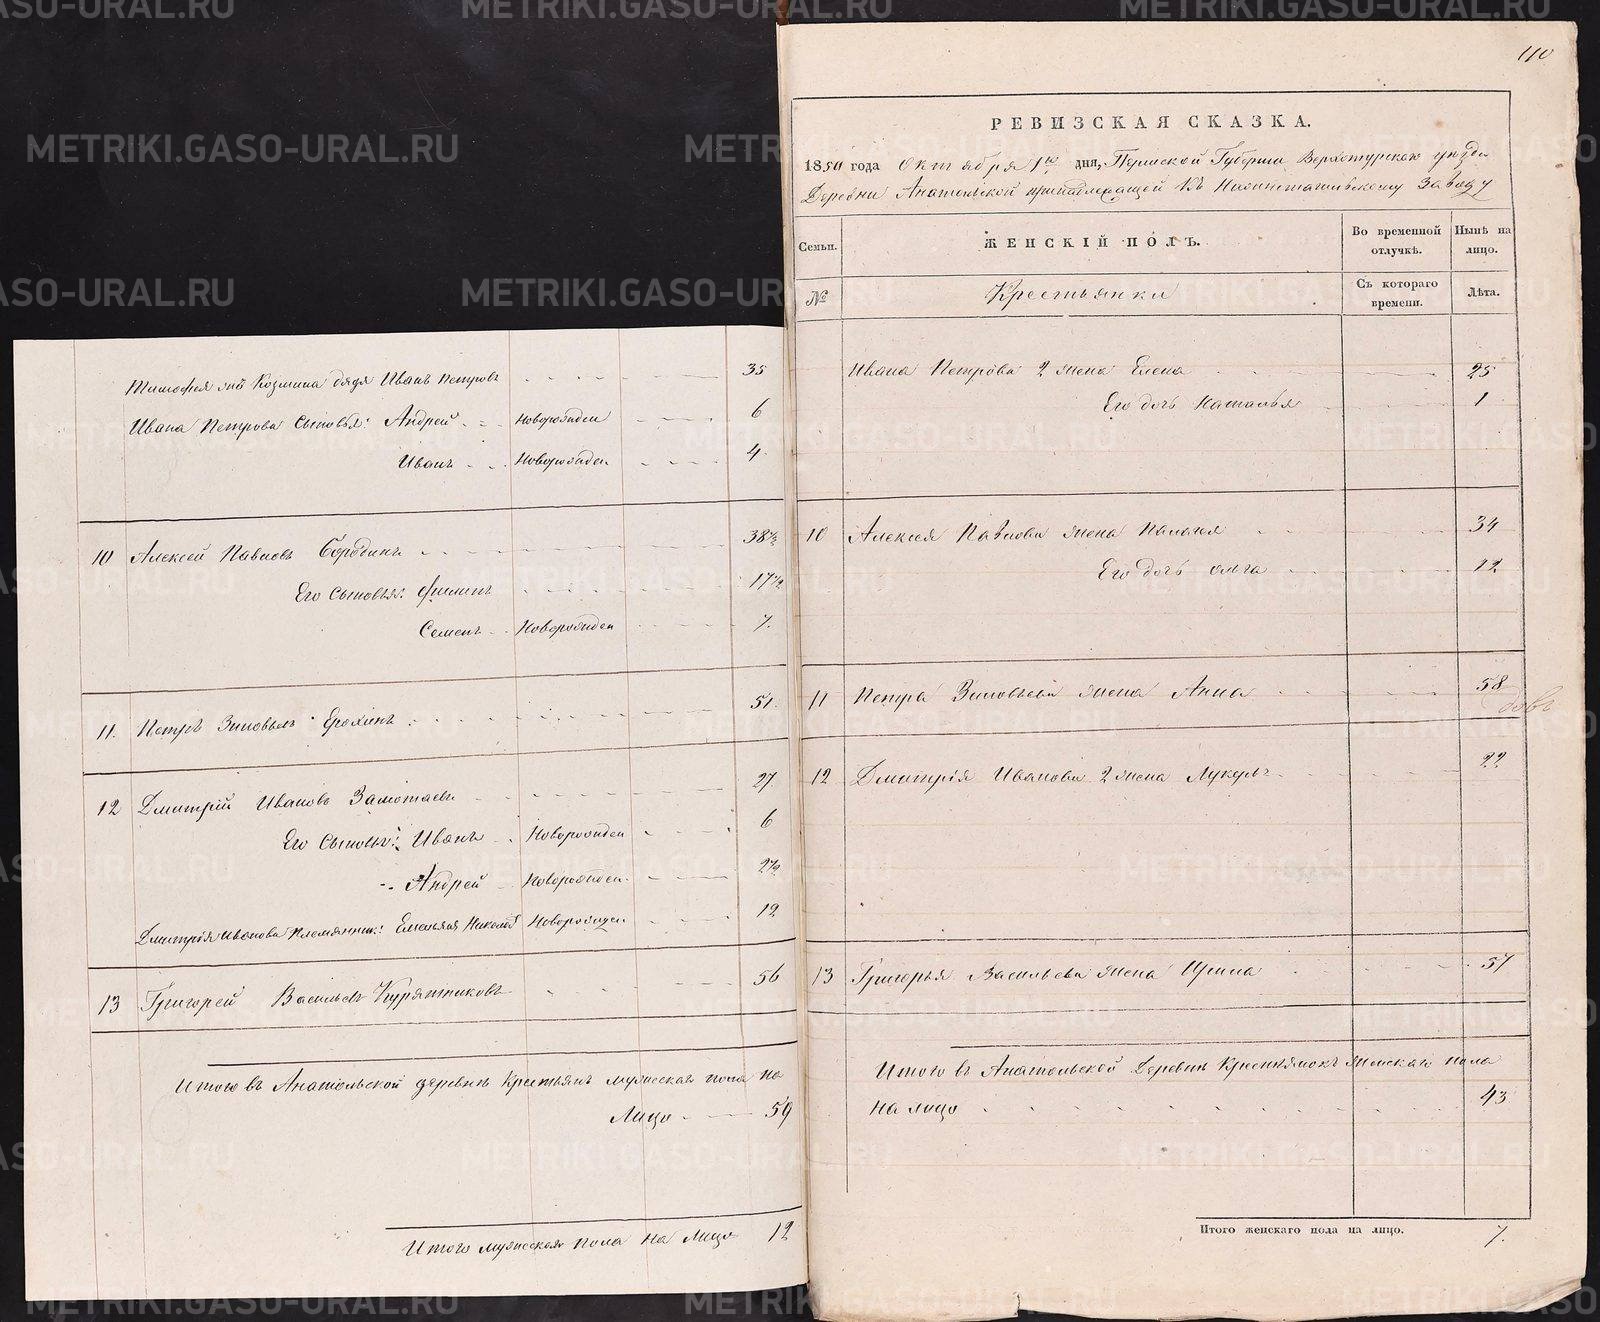 Тимофея эпъ Козмина дядя Иванъ Петровъ 35
Ивана Петрова сыновья: Андрей Новорожден 6
Иванъ Новорожден 4
10 Алексей Павловъ Бородинъ 38½
Его сыновья: Филипъ 17½
Семенъ Новорожден 7
11. Петръ Зиновьевъ Ерохинъ 51
12 Дмитрій Ивановъ Замотаевъ 27
Его сыновья: Иванъ Новорожден 6
Андрей Новорожден 2½
Дмитрія Иванова племянник: Емельян Николаев Новорожден 12
13 Григорей Васильевъ Курятниковъ 56
Итого въ Анатольской деревне Крестьянъ мужескаго пола на
Лицо 59
Итого мужескаго пола на лицо 12
110
РЕВИЗСКАЯ СКАЗКА.
1850 года Октября 1го дня, Пермской Губерніи Верхотурскаго уезда
Деревни Анатольской принадлежащей къ Нижнетагильскому заводу
Семьи. ЖЕНСКІЙ ПОЛЪ. Во временной отлучкѣ. Нынѣ на лицо.
№ Крестьянки Съ котораго времени. Лѣта.
Ивана Петрова 2 жена Елена 25
Его дочь Наталья 1
10 Алексея Павлова жена Палагея 34
Его дочь Ольга 12
11 Петра Зиновьева жена Анна 58
12 Дмитрія Иванова 2 жена Лукерья 22
13 Григорья Васильева жена Ирина 57
Итого въ Анатольской Деревне Крестьянокъ женскаго пола
на лицо 43
Итого женскаго пола на лицо. 7.
METRIKI.GASO-URAL.RU